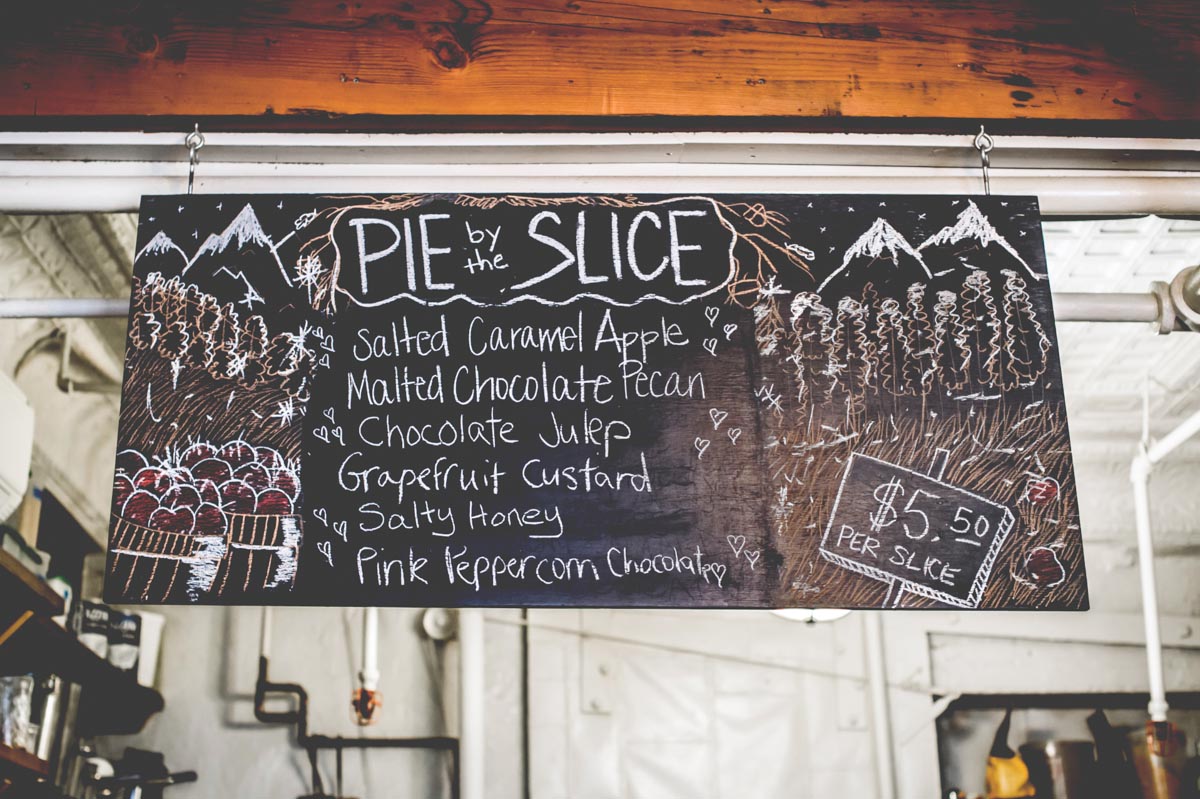 PIE by the SLICE
Salted Caramel Apple
Malted Chocolate Pecan
Chocolate Julep
Grapefruit Custard
Salty Honey
Pink Peppercorn Chocolate
$5.50
PER SLICE